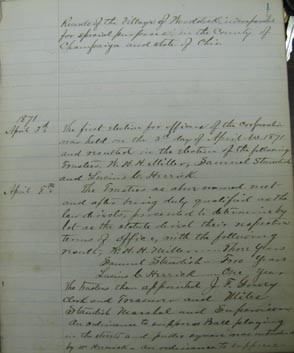 Records of the Village of Woodstock, incorporated
for special purposes, in the County of
Champaign and State of Ohio
1871
April 3rd The first election for officers of the corporation
was held on the 3rd day of April A.D. 1871
and resulted in the election of the following
Trustees W. H. H. Miller, Samuel Standish
and Lucius C. Herrick
April 8th The Trustees as above named met
and after being duly qualified as the
law directs, proceeded to determine by
lot as the statute directs their respective
terms of office, with the following
result; W. H. H. Miller Three Years
Samuel Standish Two Years
Lucius C. Herrick One Year
The Trustees then appointed J. F.
Clerk and Treasurer and Miles
Standish Marshal and Supervisor
An ordinance to suppress Ball playing
in the streets and public was
by Mr Herrick - An ordinance to suppress